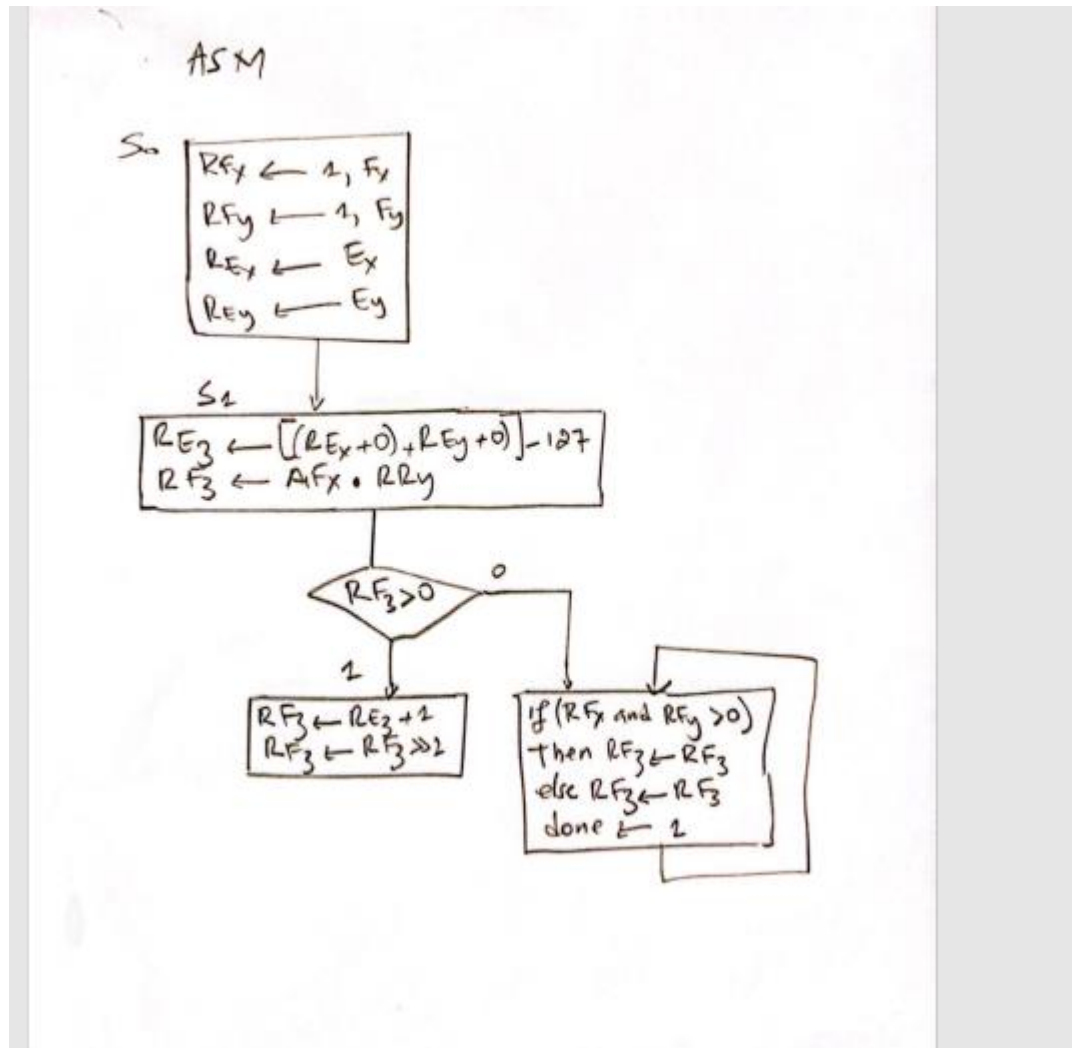 ASM
S₀
RFx ← 1, Fx
RFy ← 1, Fy
REx ← Ex
REy ← Ey
S1
RE3 ← [(REx+0)+REy+0)]-127
RF3 ← AFx • RRy
RF3>0
0
1
RF3 ← RE3+1
RF3 ← RF3>>1
if (RFx and RFy >0)
then RF3 ← RF3
else RF3 ← RF3
done ← 1